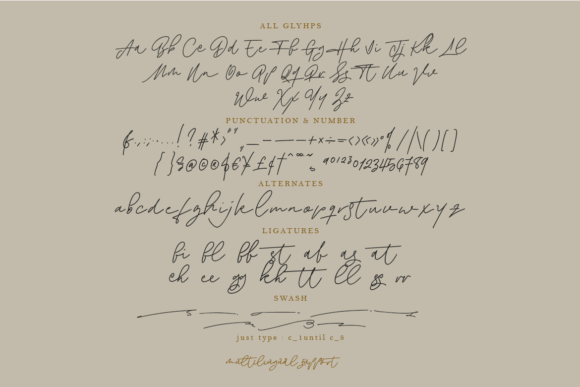 ALL GLYHPS
Aa Bb Cc Dd Ee Ff Gg Hh Ii Jj Kk Ll
Mm Nn Oo Pp Qq Rr Ss Tt Uu Vv
Ww Xx Yy Zz
PUNCTUATION & NUMBER
0123456789
ALTERNATES
abcdefghijklmnopqrstuvwxyz
LIGATURES
fi fl ff st ab as at
ch ee gg kh tt ll ss rr
SWASH
just type : c_1until c_8
multilingual support